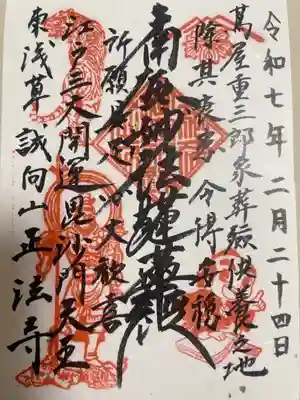 令和七年二月二十四日
蔦屋重三郎家葬験供養之地
除其衰患令得安穏
南無妙法蓮華経
祈願是処 大歓喜
江戸三大開運毘沙門天王
東浅草 誠向山 正法寺